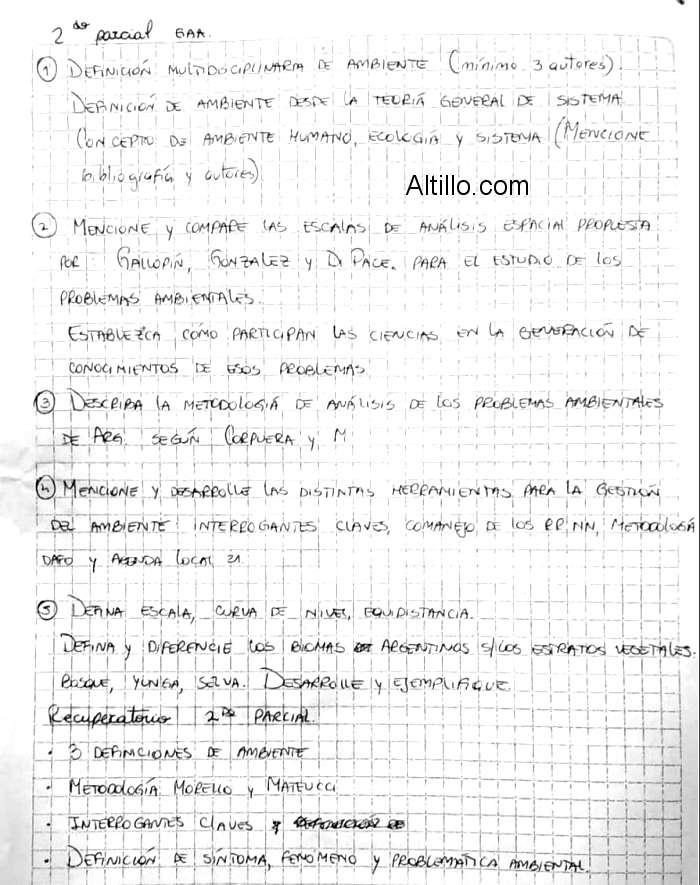 2do parcial GAA.
① DEFINICIÓN MULTIDISCIPLINARIA DE AMBIENTE (mínimo 3 autores).
DEFINICIÓN DE AMBIENTE DESDE LA TEORÍA GENERAL DE SISTEMA
CONCEPTO DE AMBIENTE HUMANO, ECOLOGÍA Y SISTEMA (MENCIONE
bibliografía y autores)
Altillo.com
② MENCIONE Y COMPARE LAS ESCALAS DE ANÁLISIS ESPACIAL PROPUESTA
POR GALLOPÍN, GONZALEZ Y DI PACE. PARA EL ESTUDIO DE LOS
PROBLEMAS AMBIENTALES.
ESTABLEZCA CÓMO PARTICIPAN LAS CIENCIAS EN LA GENERACIÓN DE
CONOCIMIENTOS DE ESOS PROBLEMAS
③ DESCRIBA LA METODOLOGÍA DE ANÁLISIS DE LOS PROBLEMAS AMBIENTALES
DE ARG. SEGÚN CORPUERA Y M
④ MENCIONE Y DESARROLLE LAS DISTINTAS HERRAMIENTAS PARA LA GESTIÓN
DEL AMBIENTE: INTERROGANTES CLAVES, COMANEJO DE LOS RRNN, METODOLOGÍA
DAFO Y AGENDA LOCAL 21
⑤ DEFINA ESCALA, CURVA DE NIVEL, EQUIDISTANCIA.
DEFINA Y DIFERENCIE LOS BIOMAS ARGENTINOS S/LOS ESTRATOS VEGETALES.
BOSQUE, YUNGA, SELVA. DESARROLLE Y EJEMPLIFIQUE
Recuperatorio 2do PARCIAL.
• 3 DEFINICIONES DE AMBIENTE
• METODOLOGÍA MORELLO Y MATEUCCI
• INTERROGANTES CLAVES
• DEFINICIÓN DE SÍNTOMA, FENÓMENO Y PROBLEMÁTICA AMBIENTAL.